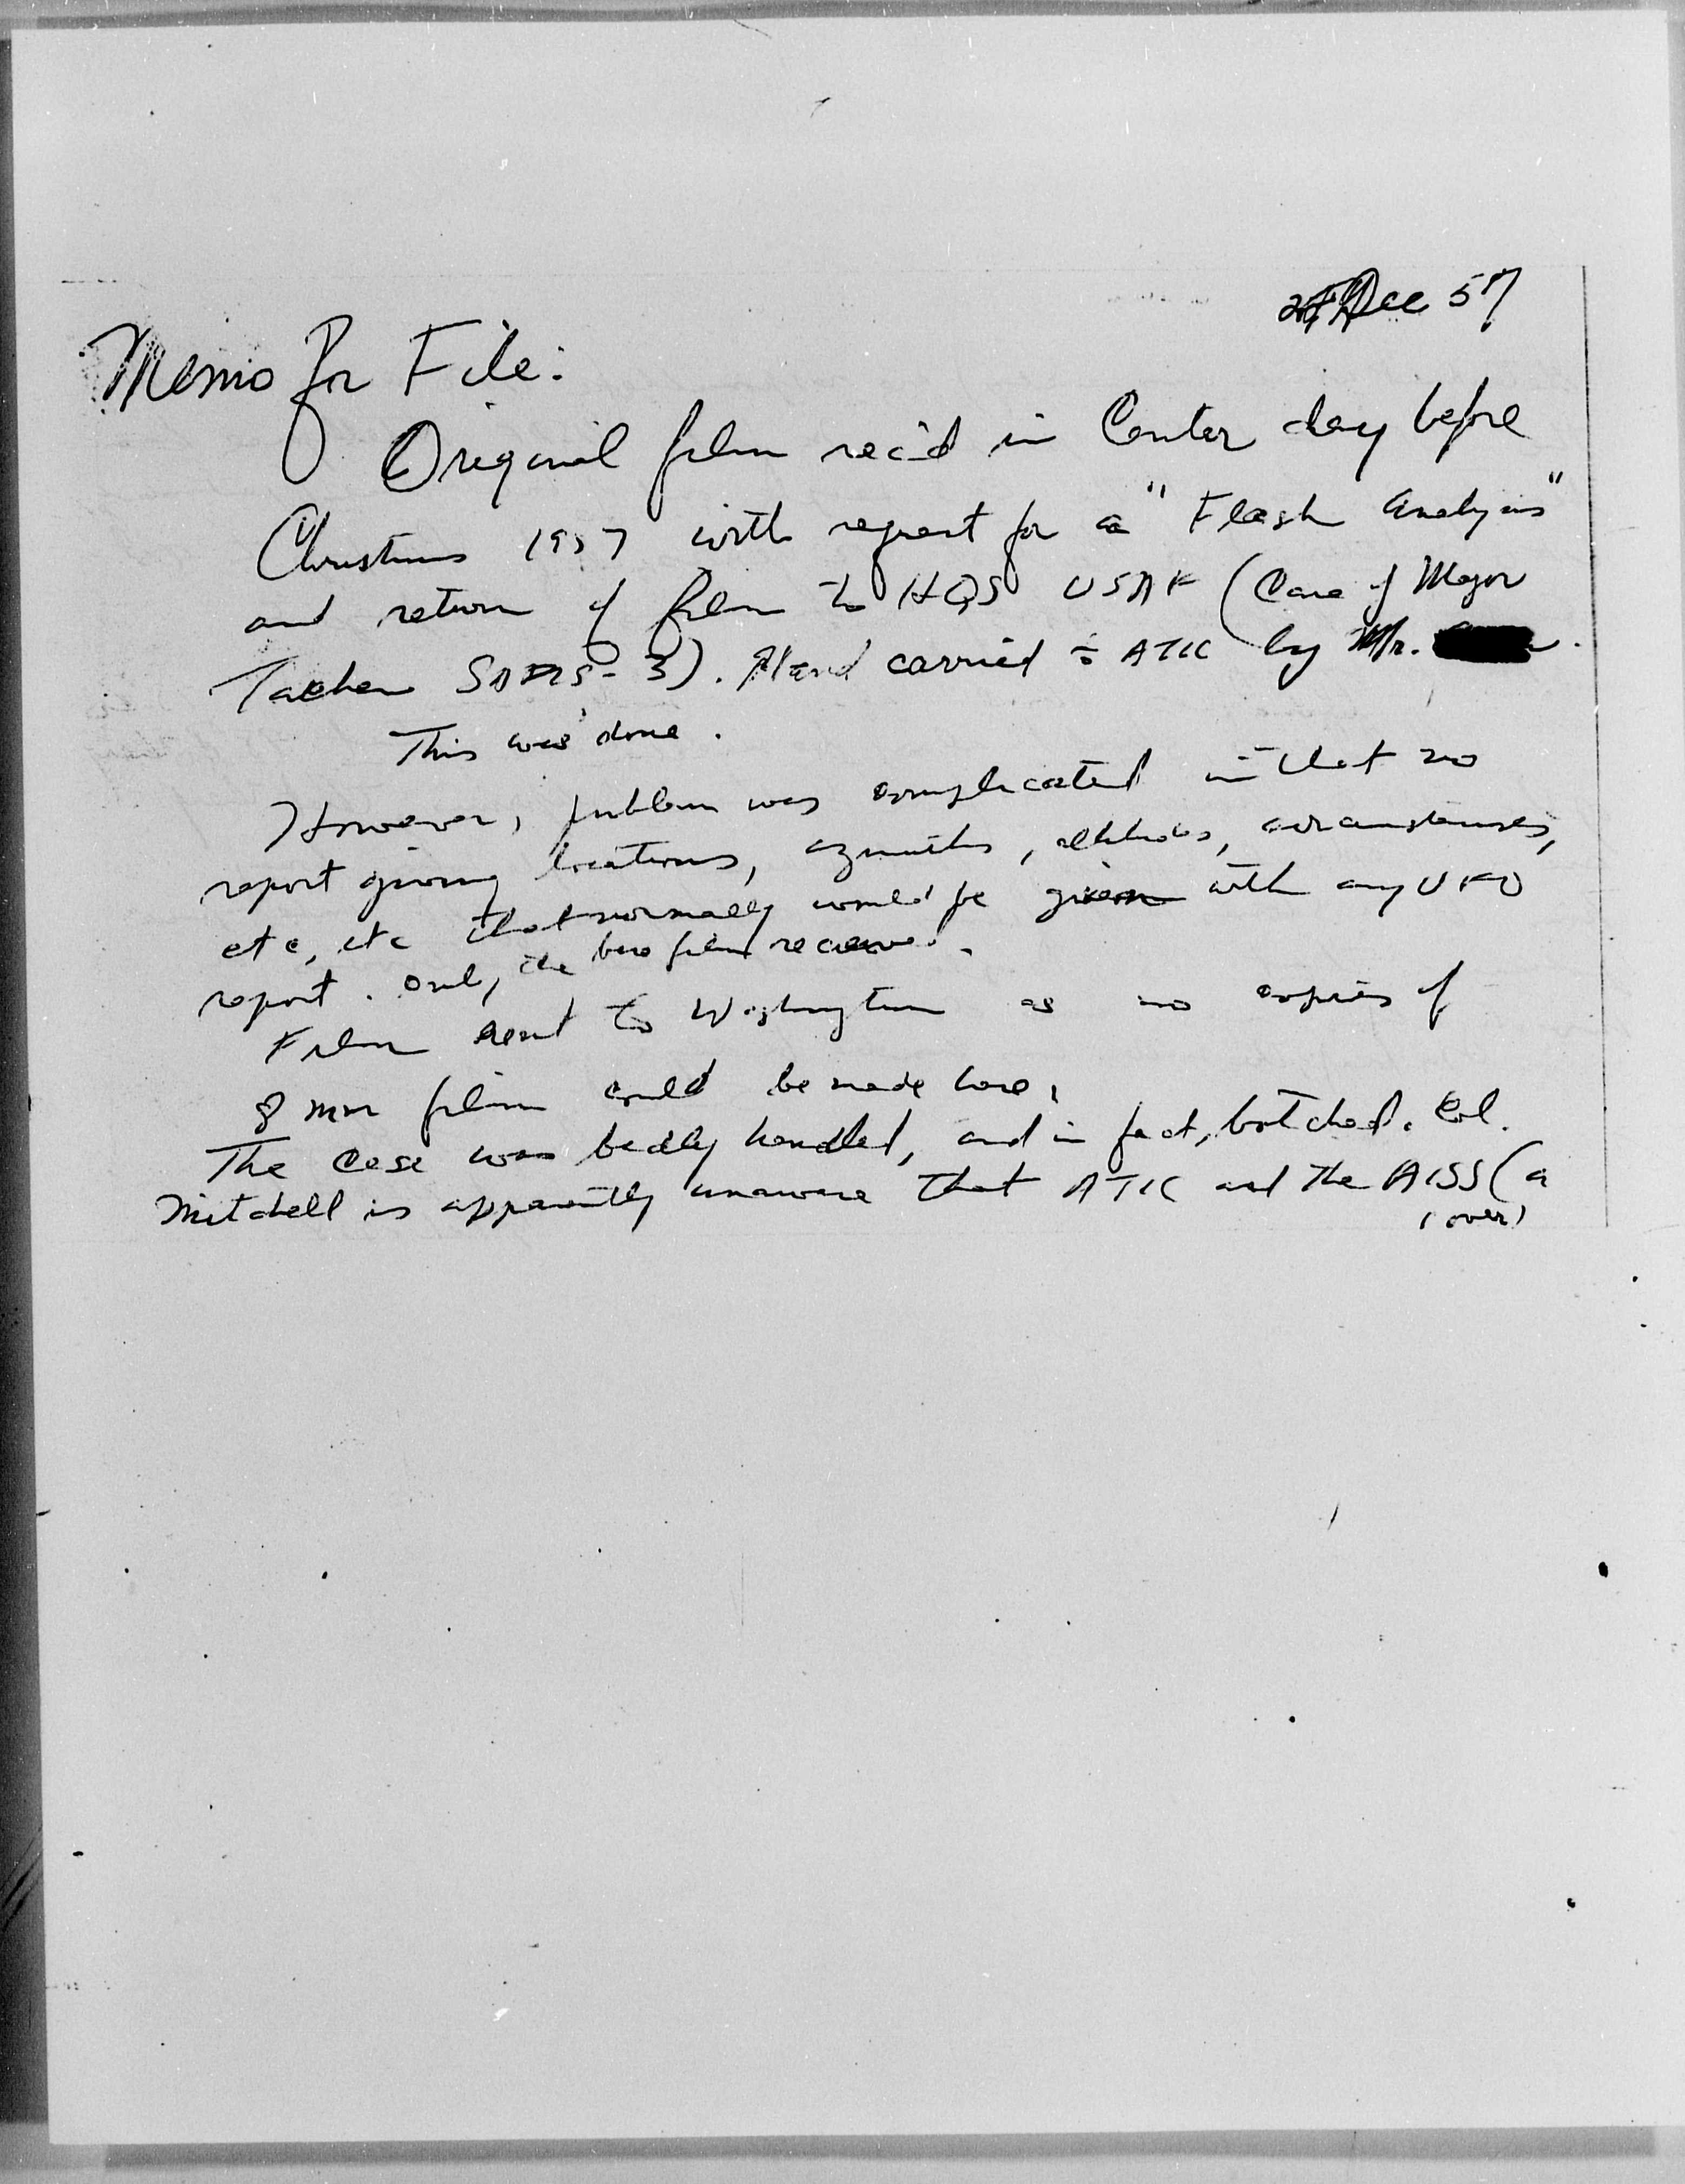 Dec 57
Memo for File:
Original film rec'd in Center day before
Christmas 1957 with request for a "Flash Analysis"
and return of film to HQS USAF (Care of Major
Tacker SAFIS-3). Hand carried to ATIC by Mr.
This was done.
However, problem was complicated in that no
report giving locations, azimuths, altitudes, circumstances,
etc, etc that normally would be given with any UFO
report. Only the two film received.
Film sent to Washington as no copies of
8 mm film could be made here.
The case was badly handled, and in fact, botched. Col.
Mitchell is apparently unaware that ATIC and the AISS (a
(over)